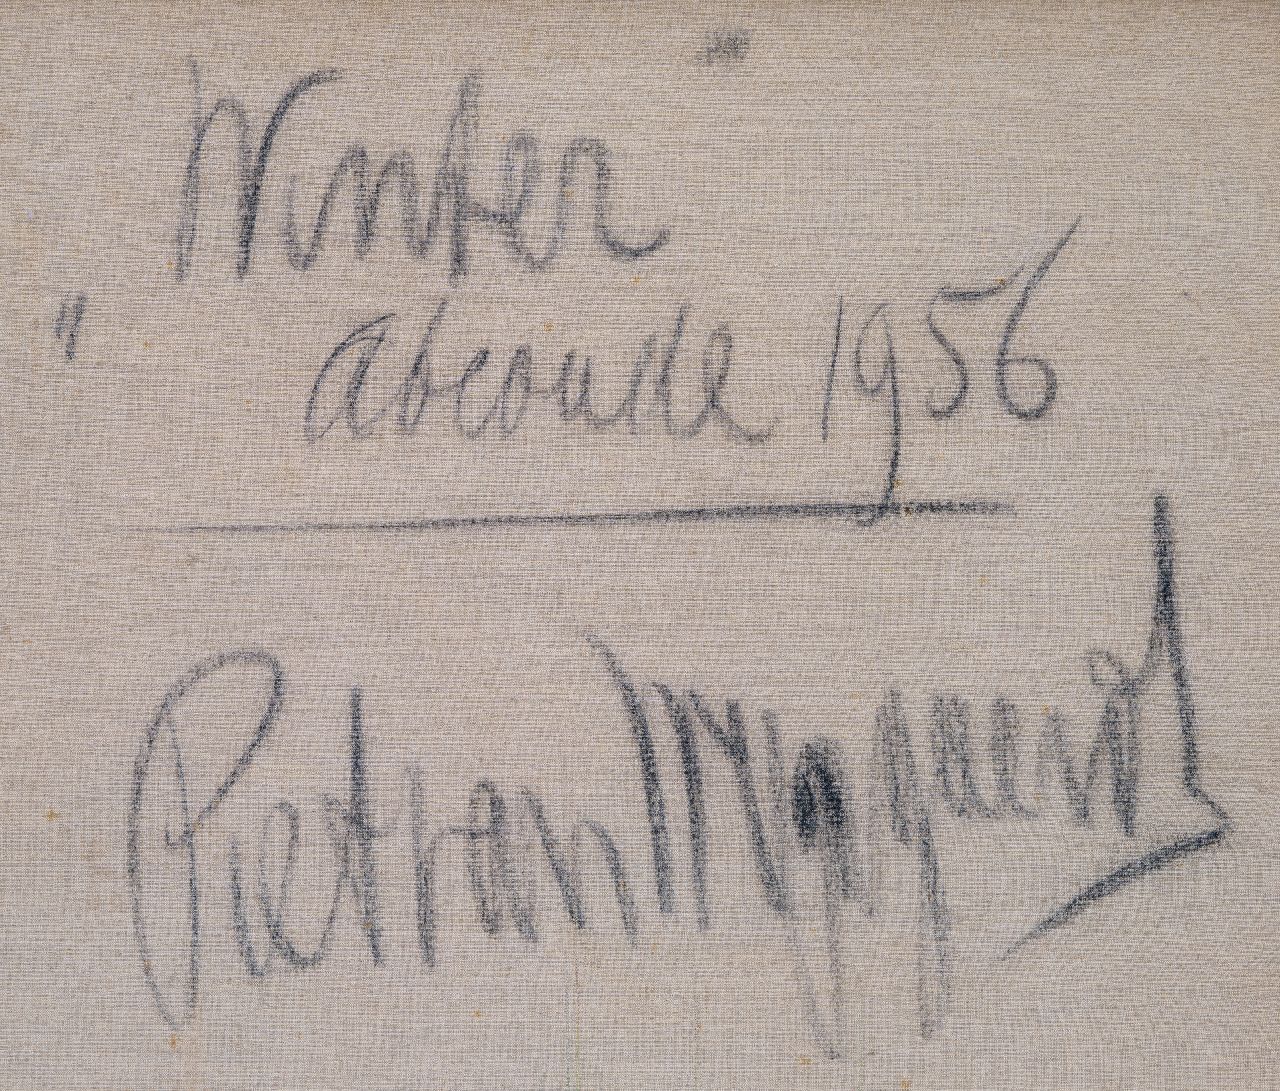 Winter
" abcoude 1956
Piet van Wijngaerdt